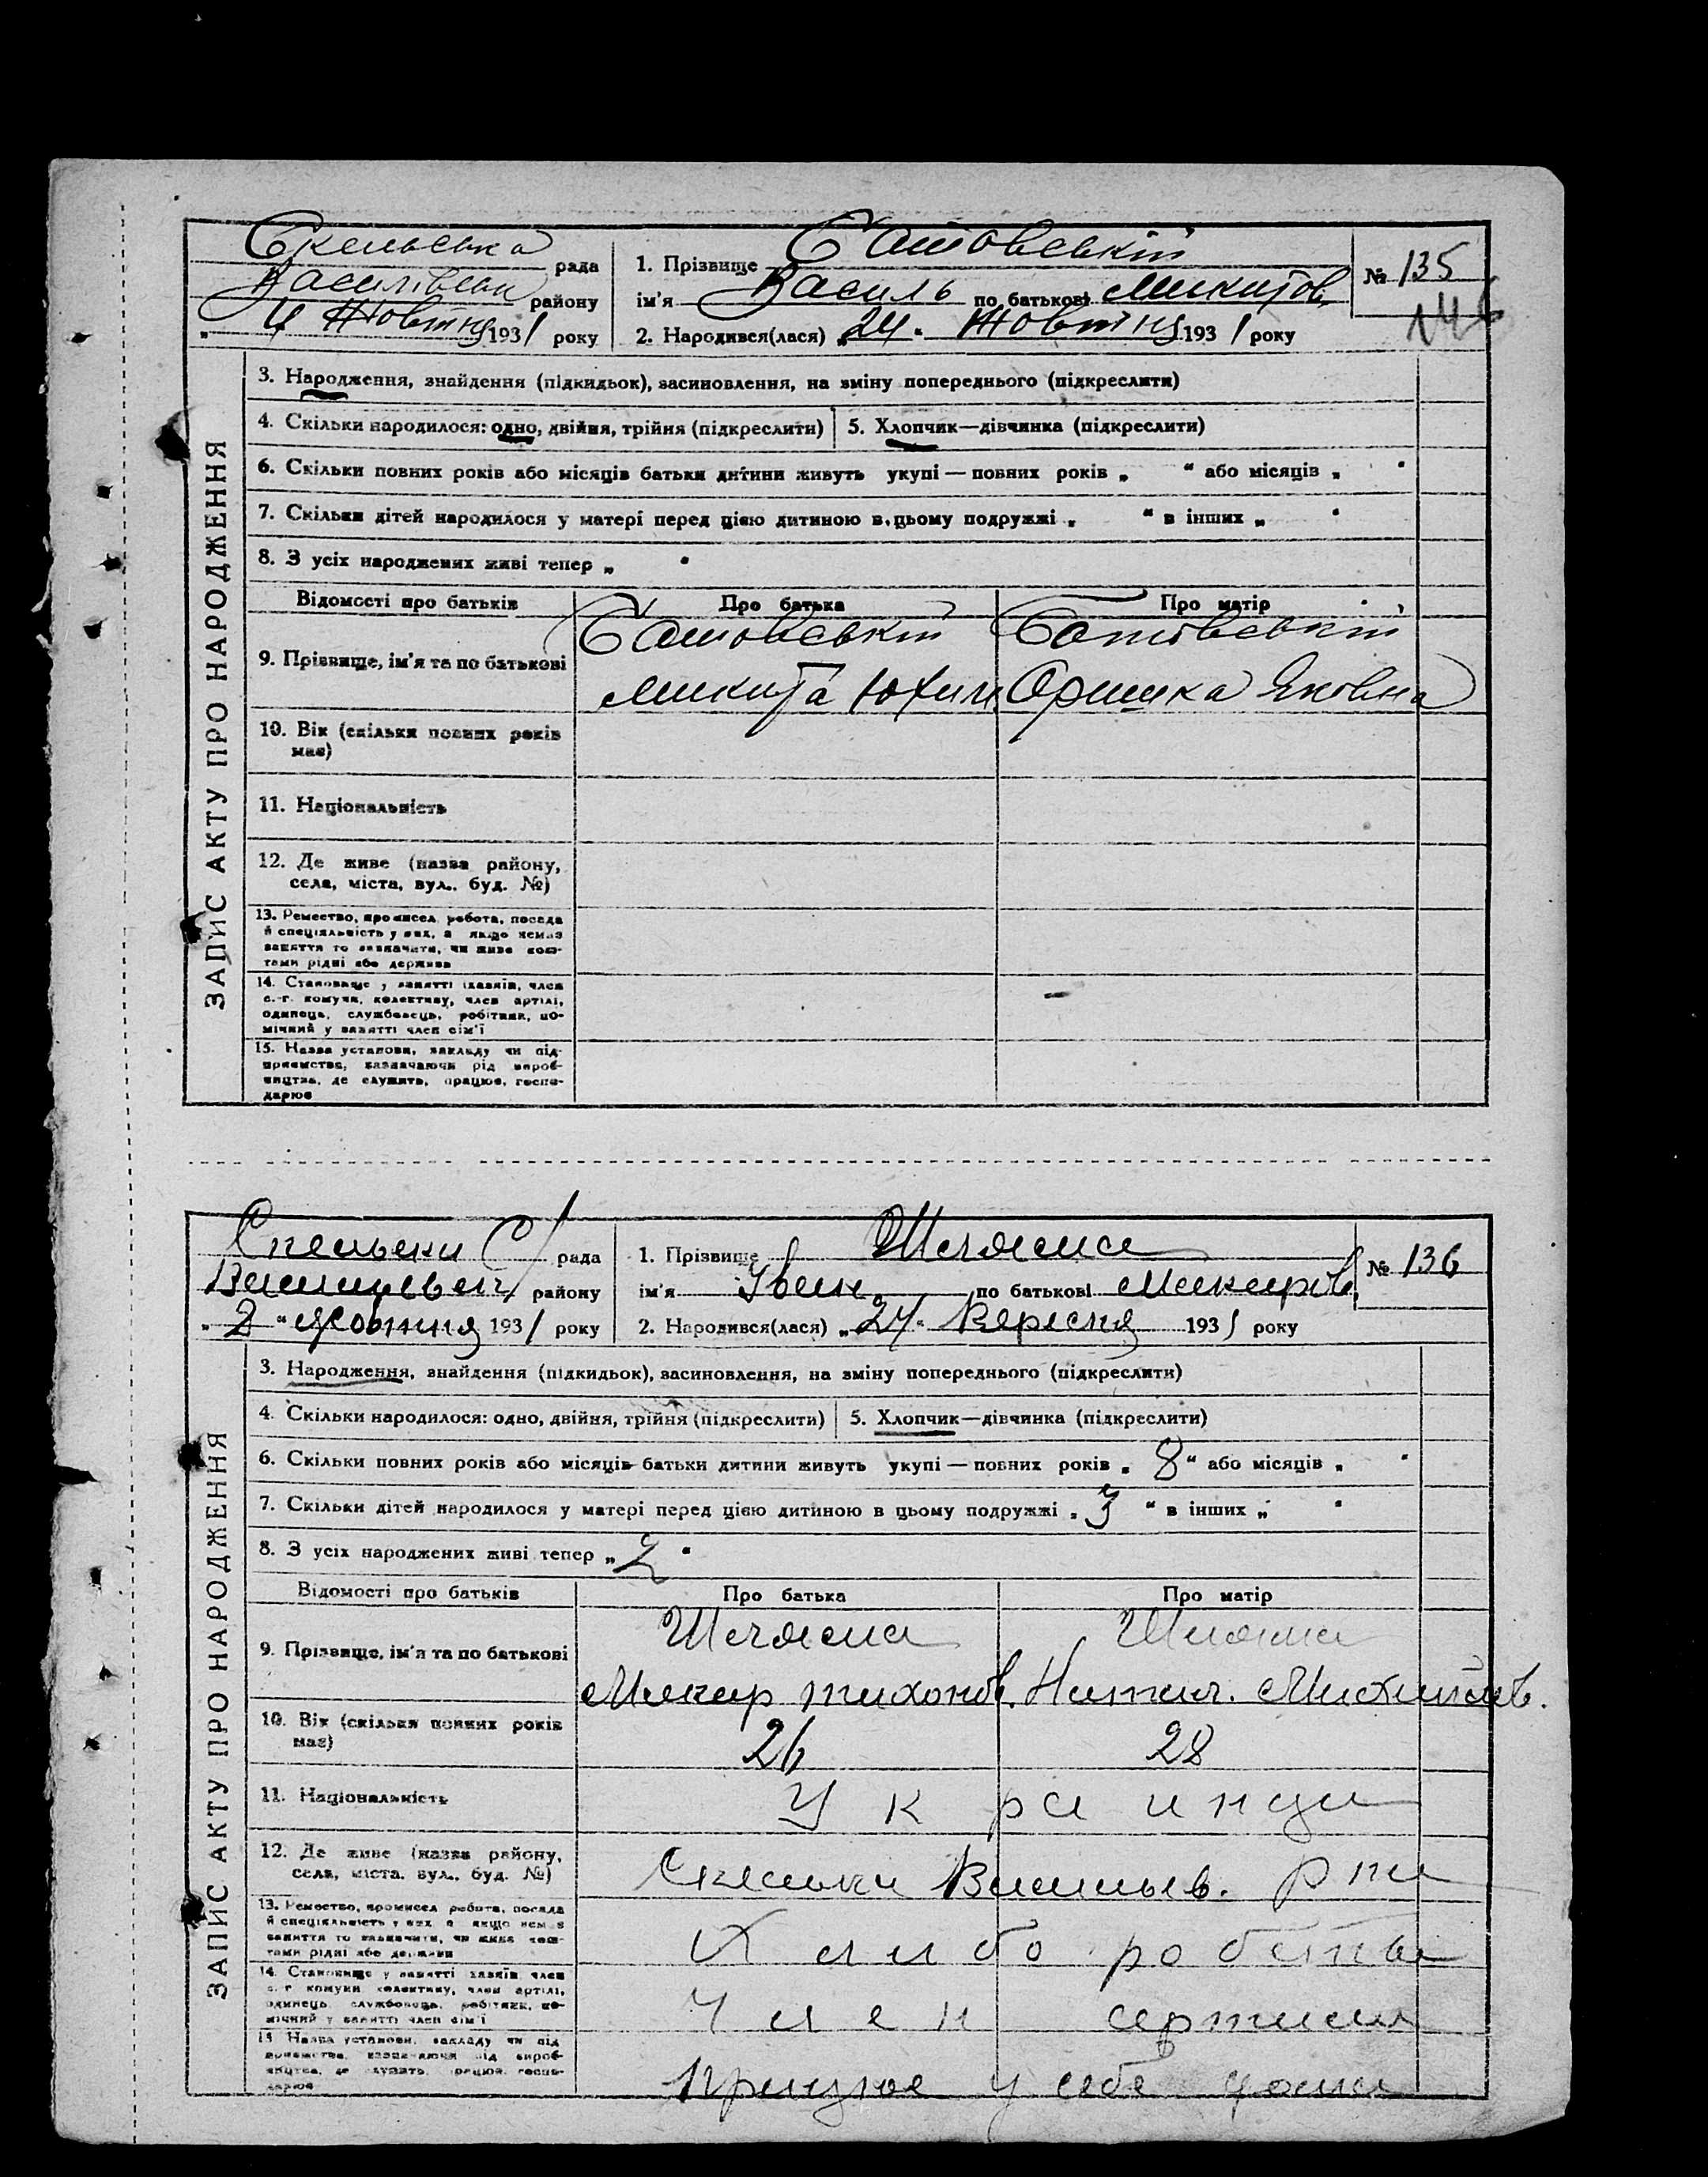 Скельська рада
Василівськ району
„ 4 Жовтня 1931 року
1. Прізвище
ім'я Василь по батькові Микитов
2. Народився(лася) „24„ Жовтня 1931 року
№ 135
3. Народження, знайдення (підкидьок), засиновлення, на зміну попереднього (підкреслити)
4. Скільки народилося: одно, двійня, трійня (підкреслити) 5. Хлопчик—дівчинка (підкреслити)
6. Скільки повних років або місяців батьки дитини живуть укупі — повних років „ “ або місяців „ “
7. Скільки дітей народилося у матері перед цією дитиною в цьому подружжі „ “ в інших „ “
8. З усіх народжених живі тепер „ “
Відомості про батьків Про батька Про матір
9. Прізвище, ім'я та по батькові
Микита Юхим Оришка Яковна
10. Вік (скільки повних років
має)
11. Національність
12. Де живе (назва району,
села, міста, вул., буд. №)
13. Ремество, промисел, робота, посада
й спеціяльність у них, а якщо немає
заняття то зазначити, чи живе кош-
тами рідні або держави
14. Становище у занятті хазяїн, член
с.-г. комуни, колективу, член артілі,
одинець, службовець, робітник, по-
мічний у занятті член сім'ї
15. Назва установи, закладу чи під-
приємства, зазначаючи рід вироб-
ництва, де служить, працює, госпо-
дарює
ЗАПИС АКТУ ПРО НАРОДЖЕННЯ
Скельськи С/ рада
району
„ 2 “ Жовтня 1931 року
1. Прізвище
ім'я Іван по батькові Макаров.
2. Народився(лася) „24„ Вересня 1931 року
№ 136
3. Народження, знайдення (підкидьок), засиновлення, на зміну попереднього (підкреслити)
4. Скільки народилося: одно, двійня, трійня (підкреслити) 5. Хлопчик—дівчинка (підкреслити)
6. Скільки повних років або місяців батьки дитини живуть укупі — повних років „ 8 “ або місяців „ “
7. Скільки дітей народилося у матері перед цією дитиною в цьому подружжі „ 3 “ в інших „ “
8. З усіх народжених живі тепер „ 2 “
Відомості про батьків Про батька Про матір
9. Прізвище, ім'я та по батькові
Макар тихонов. Натал. Михайлов.
10. Вік (скільки повних років
має)
26 28
11. Національність
Украинци
12. Де живе (назва району,
села, міста, вул., буд. №)
Скельки Васильев. р-ни
13. Ремество, промисел робота, посада
й спеціяльність у них а якщо немає
заняття то зазначити, чи живе кош-
тами рідні або держави
Хлибороби
14. Становище у занятті хазяїн, член
с.-г. комуни колективу, член артілі,
одинець службовець, робітник, по-
мічний у занятті член сім'ї
Член артили
15 Назва установи, закладу чи під
приємства, зазначаючи рід вироб-
ництва, де служить, працює, госпо-
дарює
Працює у себе дома
ЗАПИС АКТУ ПРО НАРОДЖЕННЯ